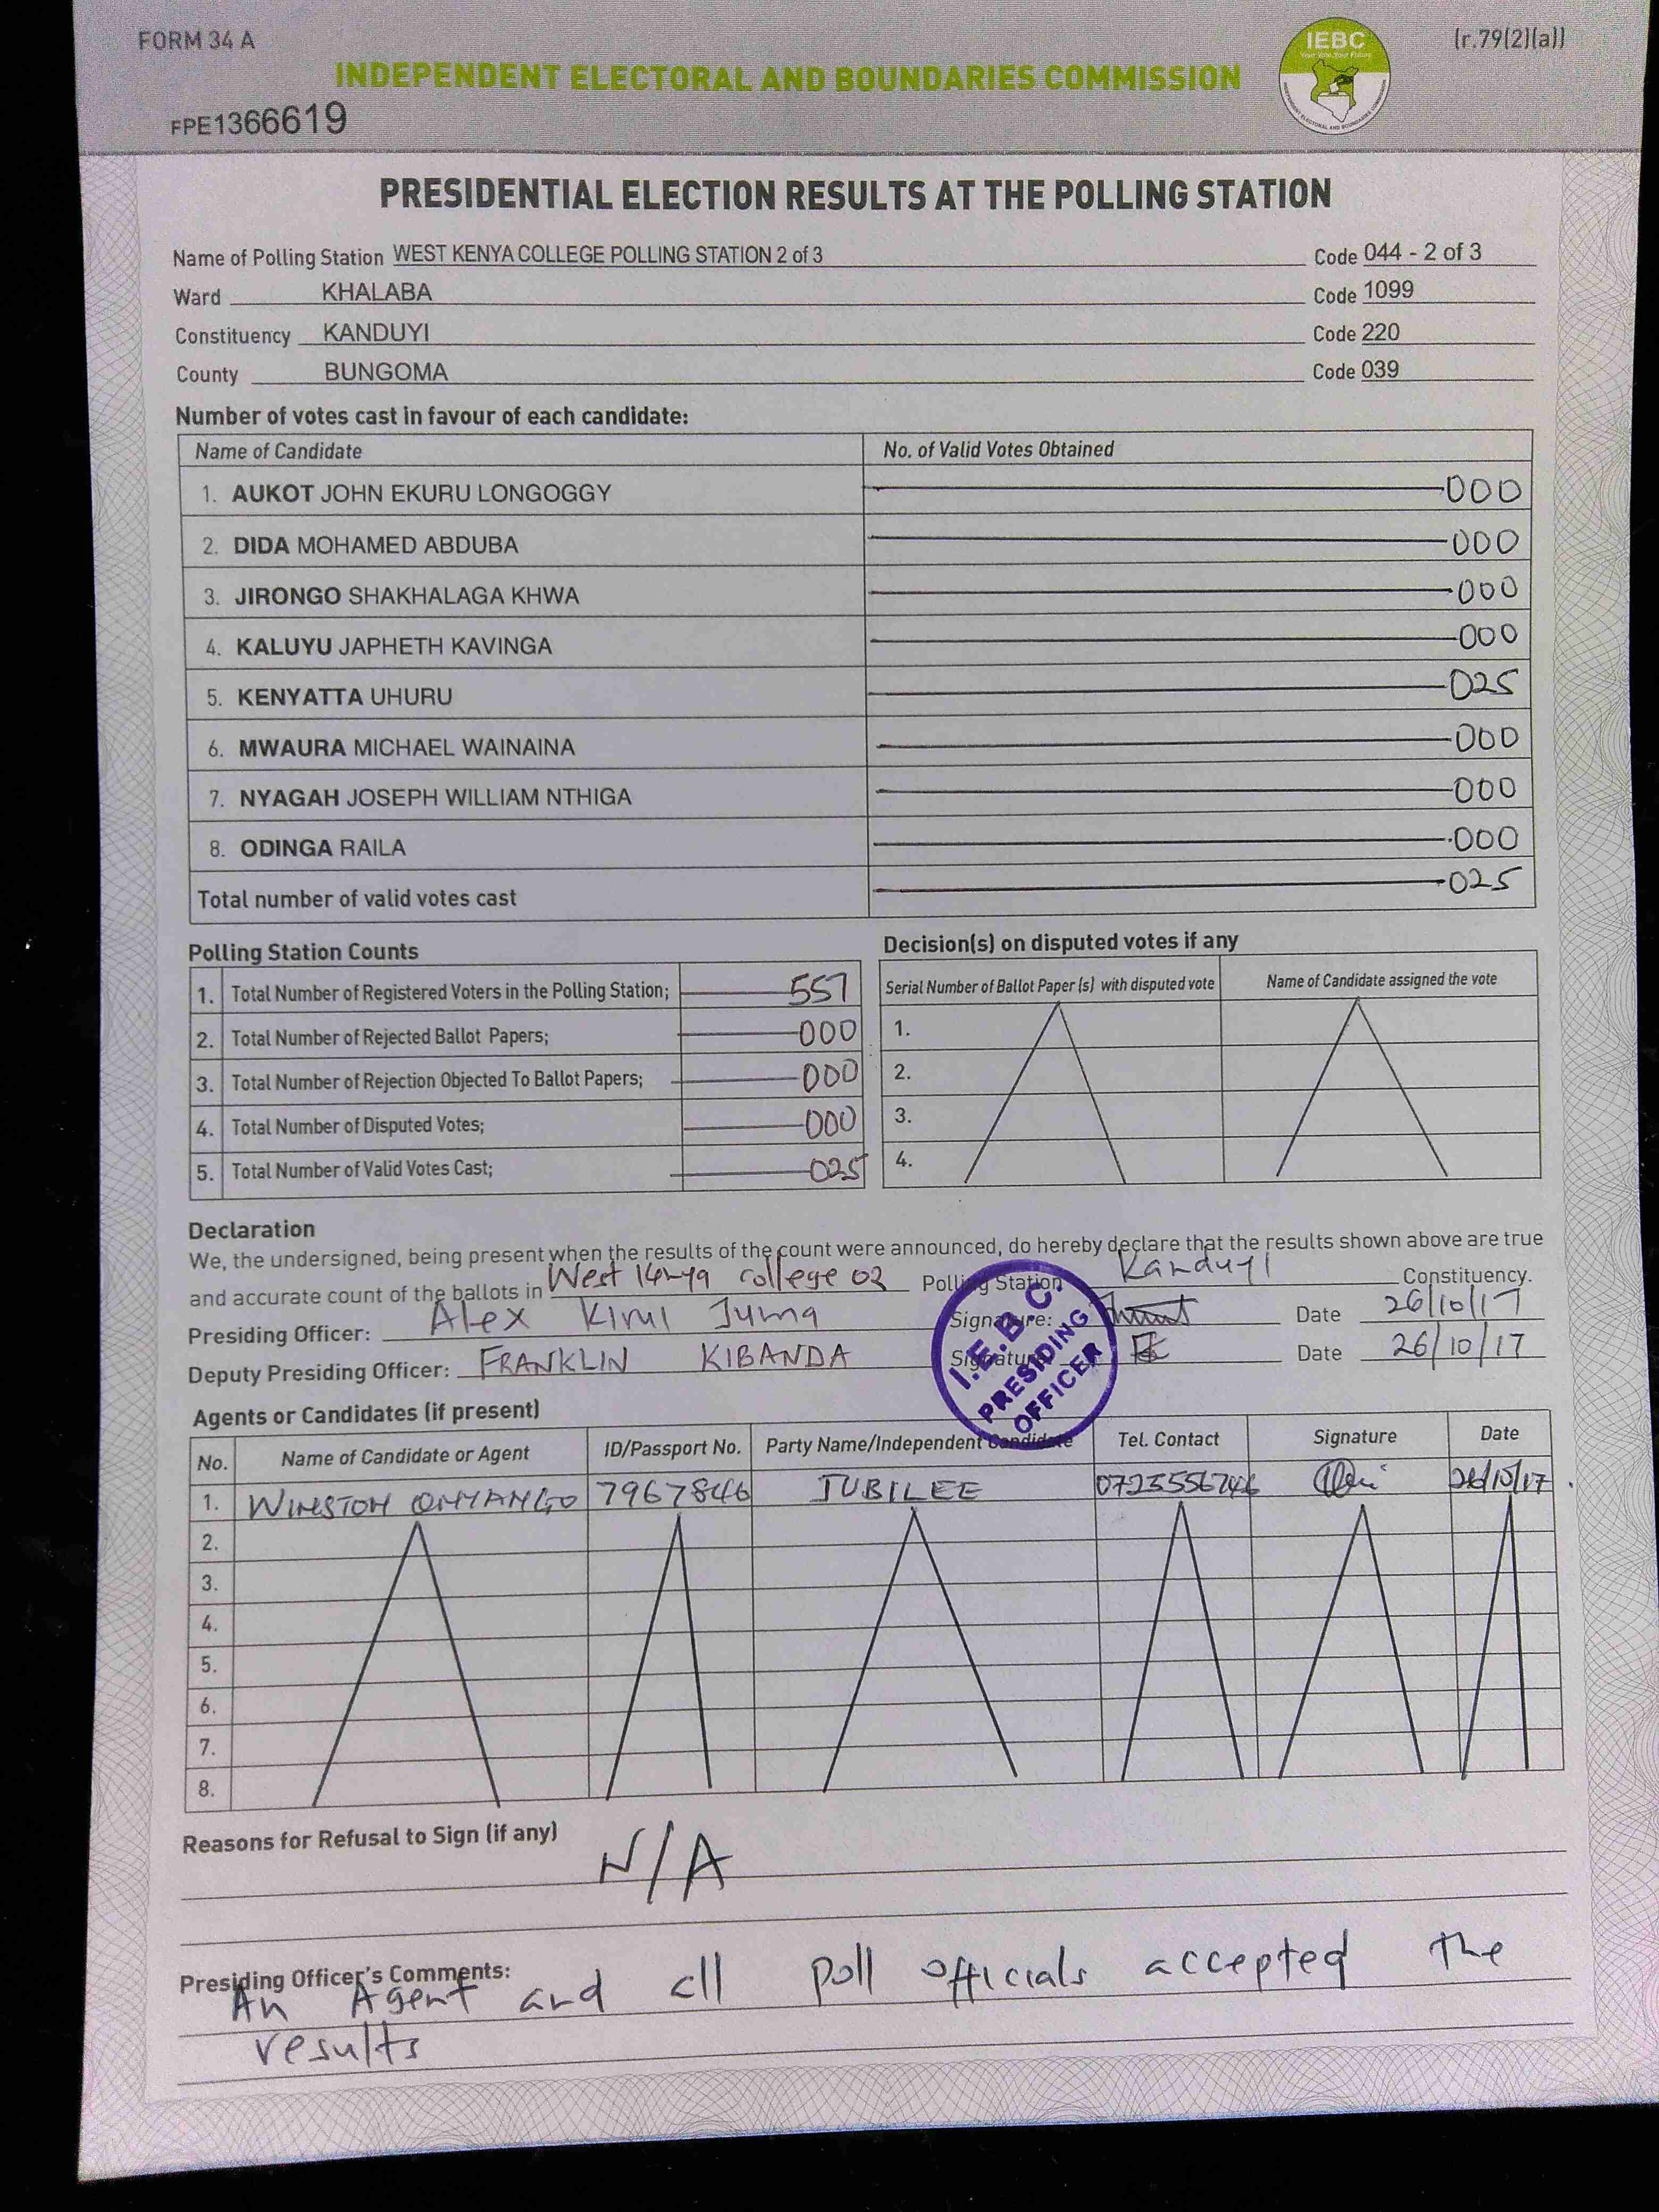 FORM 34 A
(r.79(2)(a))
IEBC
Your Vote, Your Future
INDEPENDENT ELECTORAL AND BOUNDARIES COMMISSION
FPE1366619
PRESIDENTIAL ELECTION RESULTS AT THE POLLING STATION
Name of Polling Station WEST KENYA COLLEGE POLLING STATION 2 of 3 Code 044 - 2 of 3
Ward KHALABA Code 1099
Constituency KANDUYI Code 220
County BUNGOMA Code 039
Number of votes cast in favour of each candidate:
Name of Candidate No. of Valid Votes Obtained
1. AUKOT JOHN EKURU LONGOGGY 000
2. DIDA MOHAMED ABDUBA 000
3. JIRONGO SHAKHALAGA KHWA 000
4. KALUYU JAPHETH KAVINGA 000
5. KENYATTA UHURU 025
6. MWAURA MICHAEL WAINAINA 000
7. NYAGAH JOSEPH WILLIAM NTHIGA 000
8. ODINGA RAILA 000
Total number of valid votes cast 025
Polling Station Counts
1. Total Number of Registered Voters in the Polling Station; 557
2. Total Number of Rejected Ballot Papers; 000
3. Total Number of Rejection Objected To Ballot Papers; 000
4. Total Number of Disputed Votes; 000
5. Total Number of Valid Votes Cast; 025
Decision(s) on disputed votes if any
Serial Number of Ballot Paper (s) with disputed vote Name of Candidate assigned the vote
1.
2.
3.
4.
Declaration
We, the undersigned, being present when the results of the count were announced, do hereby declare that the results shown above are true
and accurate count of the ballots in West Kenya college 02 Polling Station Kanduyi Constituency.
Presiding Officer: Alex Kirui Juma Signature: Date 26/10/17
Deputy Presiding Officer: FRANKLIN KIBANDA Signature Date 26/10/17
I.E.B.C.
PRESIDING
OFFICER
Agents or Candidates (if present)
No. Name of Candidate or Agent ID/Passport No. Party Name/Independent Candidate Tel. Contact Signature Date
1. WINSTON ONYANGO 7967846 JUBILEE 26/10/17.
2.
3.
4.
5.
6.
7.
8.
Reasons for Refusal to Sign (if any)
N/A
Presiding Officer's Comments:
An Agent and all poll officials accepted the
results